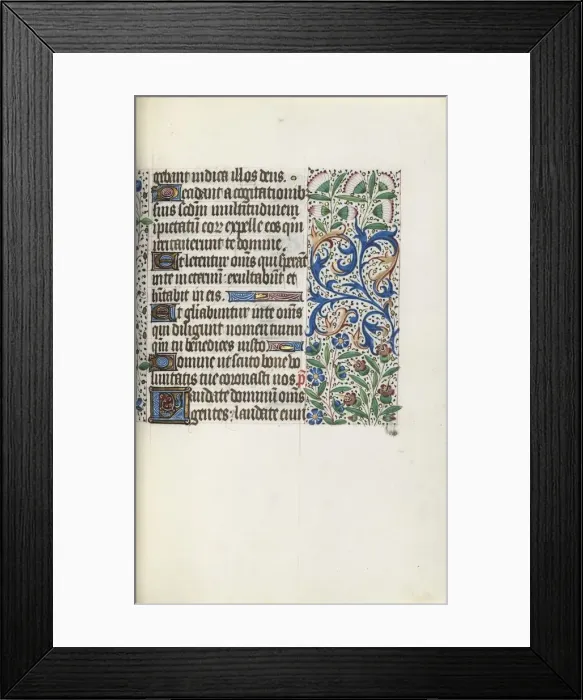 gebant iudica illos deus.
Decidant a cogitationib
suis scdm multitudinem
impietatu eoz expelle eos qm
irritauerunt te domine.
Et letentur oms qui sperant
in te in eternu exultabunt et
hitabit in eis.
Et gliabuntur in te oms
qui diligunt nomen tuum
qm tu benedices iusto.
Domine ut scuto bone vo
luntatis tue coronasti nos. p
Laudate dominu oms
gentes: laudate eum